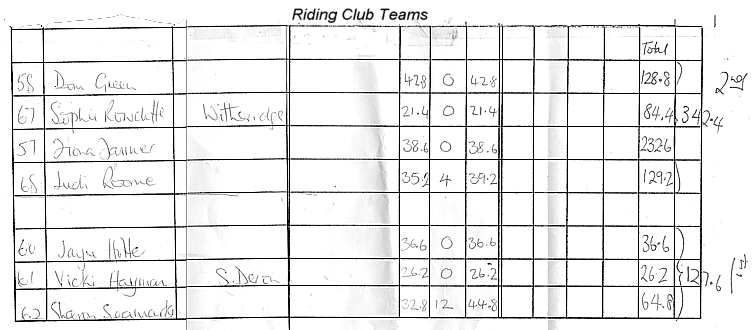 Riding Club Teams
Total
58 Dom Green 42.8 0 42.8 128.8 2nd
67 Sophie Rowcliffe Witheridge 21.4 0 21.4 84.4 342.4
57 Fiona 38.6 0 38.6 232.6
68 Judi Roome 35.2 4 39.2 129.2
60 Jayne 36.6 0 36.6 36.6
61 Vicki Hayman S. Devon 26.2 0 26.2 26.2 127.6 1st
62 Sharon 32.8 12 44.8 64.8